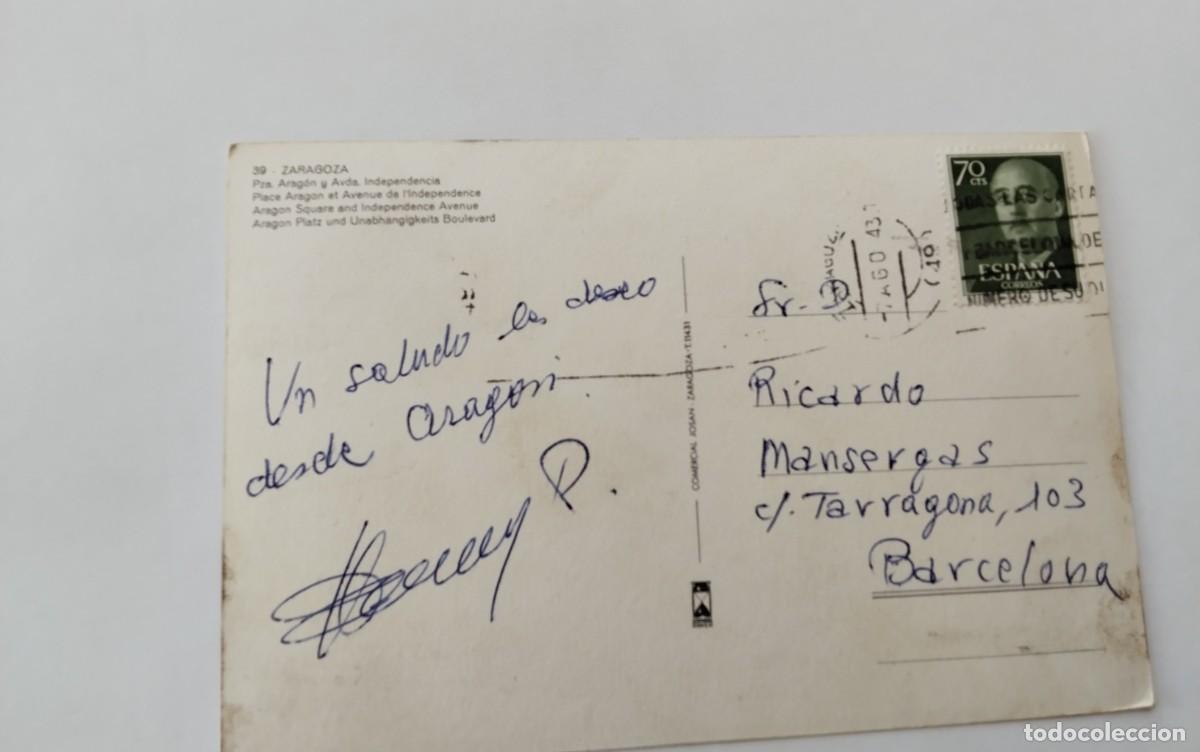 39 - ZARAGOZA
Pza. Aragón y Avda. Independencia
Place Aragon et Avenue de l'Independence
Aragon Square and Independence Avenue
Aragon Platz und Unabhangigkeits Boulevard
Un saludo les deseo
desde Aragon.
P.
COMERCIAL JOSAN - ZARAGOZA - T.
70
CTS
ESPAÑA
CORREOS
LAS CARTA
BARCELONA DE
NUMERO DE SU DI
AGO
Sr. D.
Ricardo
Mansergas
c/. Tarragona, 103
Barcelona
todocoleccion